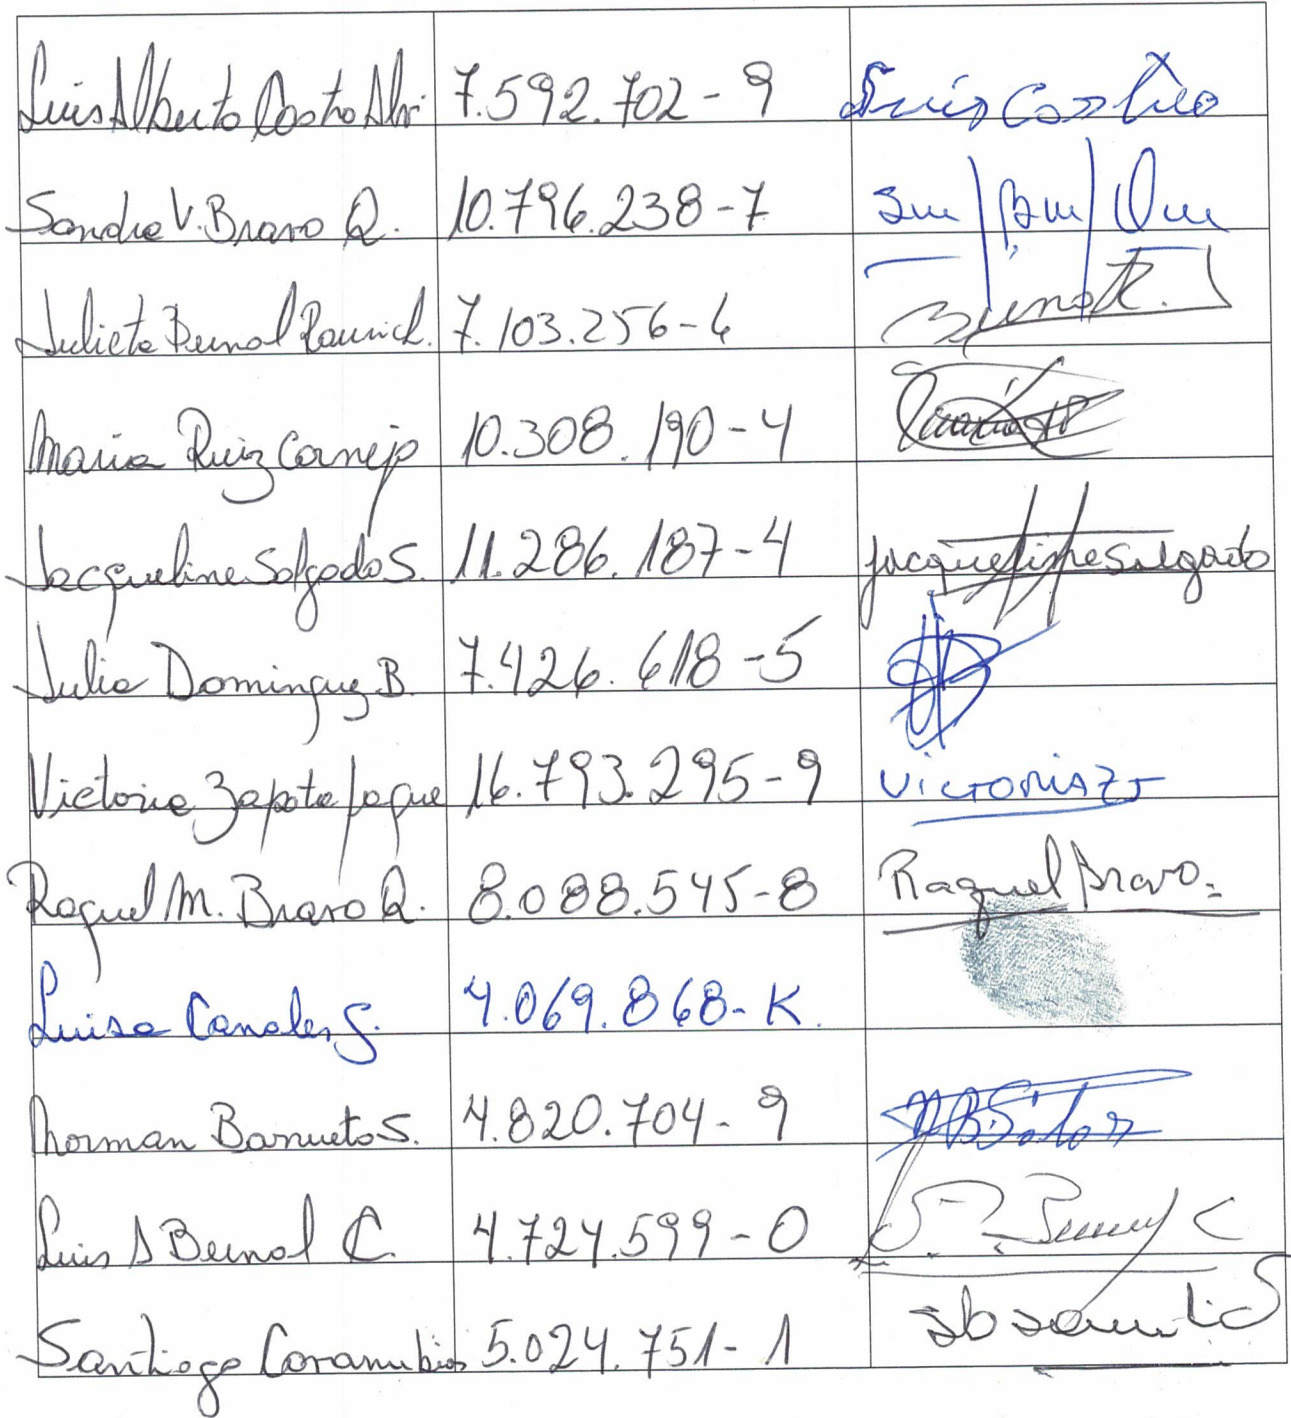 Luis Alberto Castro 7.592.702-9 Luis Castro
Sandra V. Bravo Q. 10.796.238-7
Julieta Bernal 7.103.256-6 Bernal R.
Maria Ruiz Cornejo 10.308.190-4
Jacqueline Salgado S. 11.286.187-4 Jacqueline Salgado
Julia Dominguez B. 7.426.618-5
Victoria Zapata Jaque 16.793.295-9 VICTORIA ZJ
Raquel M. Bravo Q. 8.088.545-8 Raquel Bravo
Luisa Canales S. 4.069.868-K
Norman Barrueto S. 4.820.704-9
Luis A Bernal C. 4.724.599-0
Santiago 5.024.751-1